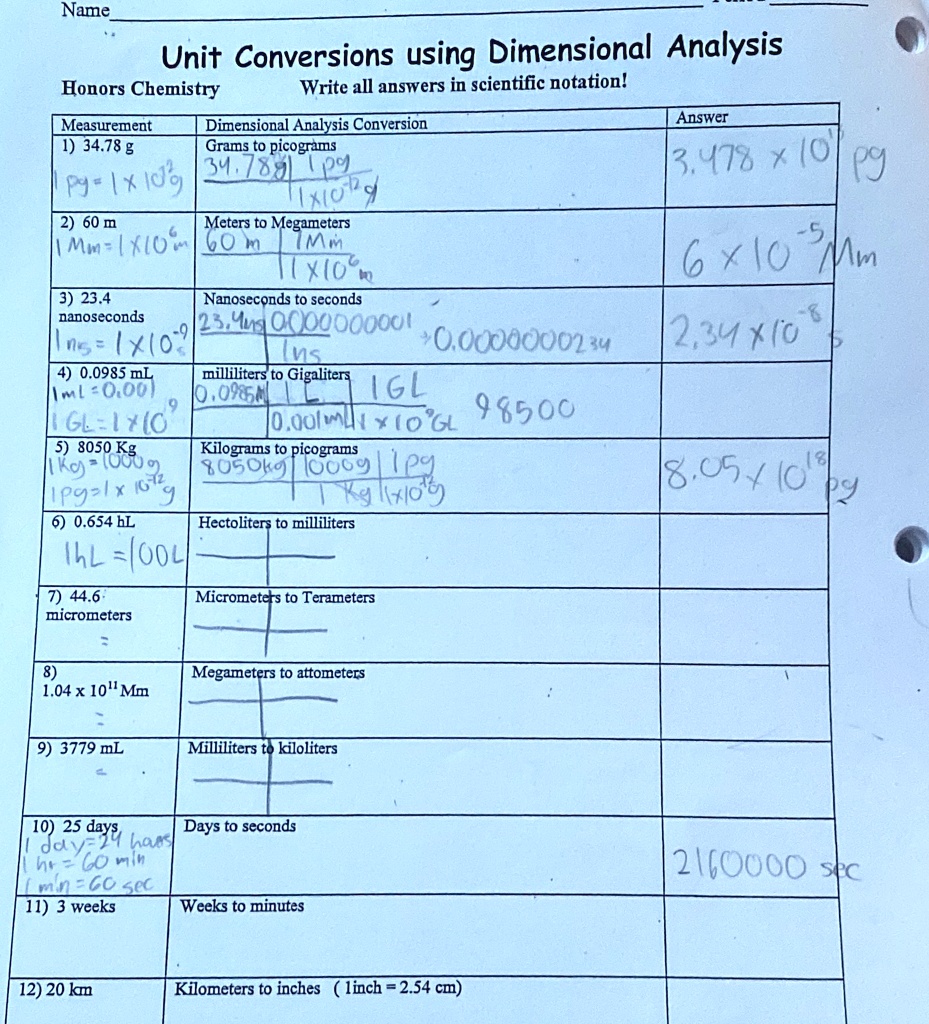 Name
Unit Conversions using Dimensional Analysis
Honors Chemistry Write all answers in scientific notation!
Measurement Dimensional Analysis Conversion Answer
1) 34.78 g Grams to picograms
34.78g 1 pg
1 pg = 1 x 10 g 1x10⁻¹² g
3.478 x 10 pg
2) 60 m Meters to Megameters
1 Mm = 1 x 10⁶ m 60 m 1 Mm
1 x 10⁶ m
6 x 10⁻⁵ Mm
3) 23.4 Nanoseconds to seconds
nanoseconds 23.4ns 0.000000001
→0.0000000234
1 ns = 1 x 10⁻⁹ s 1ns
2.34 x 10⁻⁸ s
4) 0.0985 mL milliliters to Gigaliters
1ml = 0.001 0.0985 1 L 1 GL
1 GL = 1 x 10⁹ 0.001ml 1 x 10⁹ GL 98500
5) 8050 Kg Kilograms to picograms
1 Kg = 1000 g 8050kg 1000g 1 pg
1 pg = 1 x 10⁻¹² g 1 Kg 1x10⁻¹² g
8.05 x 10¹⁸ pg
6) 0.654 hL Hectoliters to milliliters
1hL = 100L
7) 44.6 Micrometers to Terameters
micrometers
=
8) Megameters to attometers
1.04 x 10¹¹ Mm
=
9) 3779 mL Milliliters to kiloliters
=
10) 25 days Days to seconds
1 day = 24 hours
1 hr = 60 min
1 min = 60 sec
2160000 sec
11) 3 weeks Weeks to minutes
12) 20 km Kilometers to inches ( 1inch = 2.54 cm)